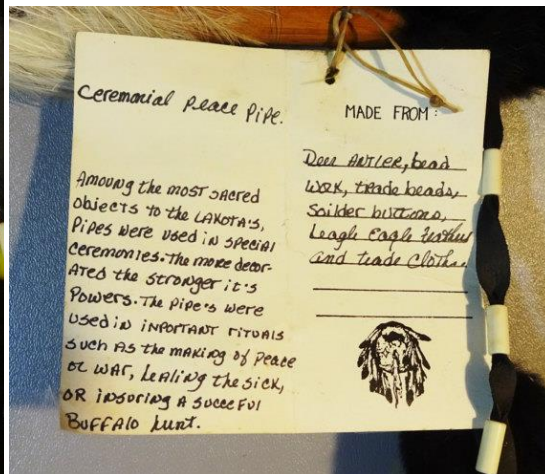 Ceremonial Peace Pipe.
Amoung the most sacred
objects to the LAKOTA'S,
Pipes were used in special
ceremonies. The more decor-
ated the stronger it's
Powers. The Pipe's were
used in inportant rituals
such as the making of Peace
or war, healing the sick,
OR insuring A succeful
Buffalo hunt.
MADE FROM:
Deer ANTLER, bead
work, trade beads,
Soilder buttons,
Leagle Eagle feathers
and trade cloth.